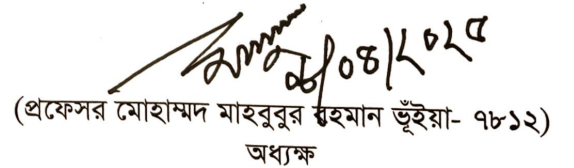 ০৮/০৪/২০২৫
(প্রফেসর মোহাম্মদ মাহবুবুর রহমান ভূঁইয়া- ৭৮১২)
অধ্যক্ষ